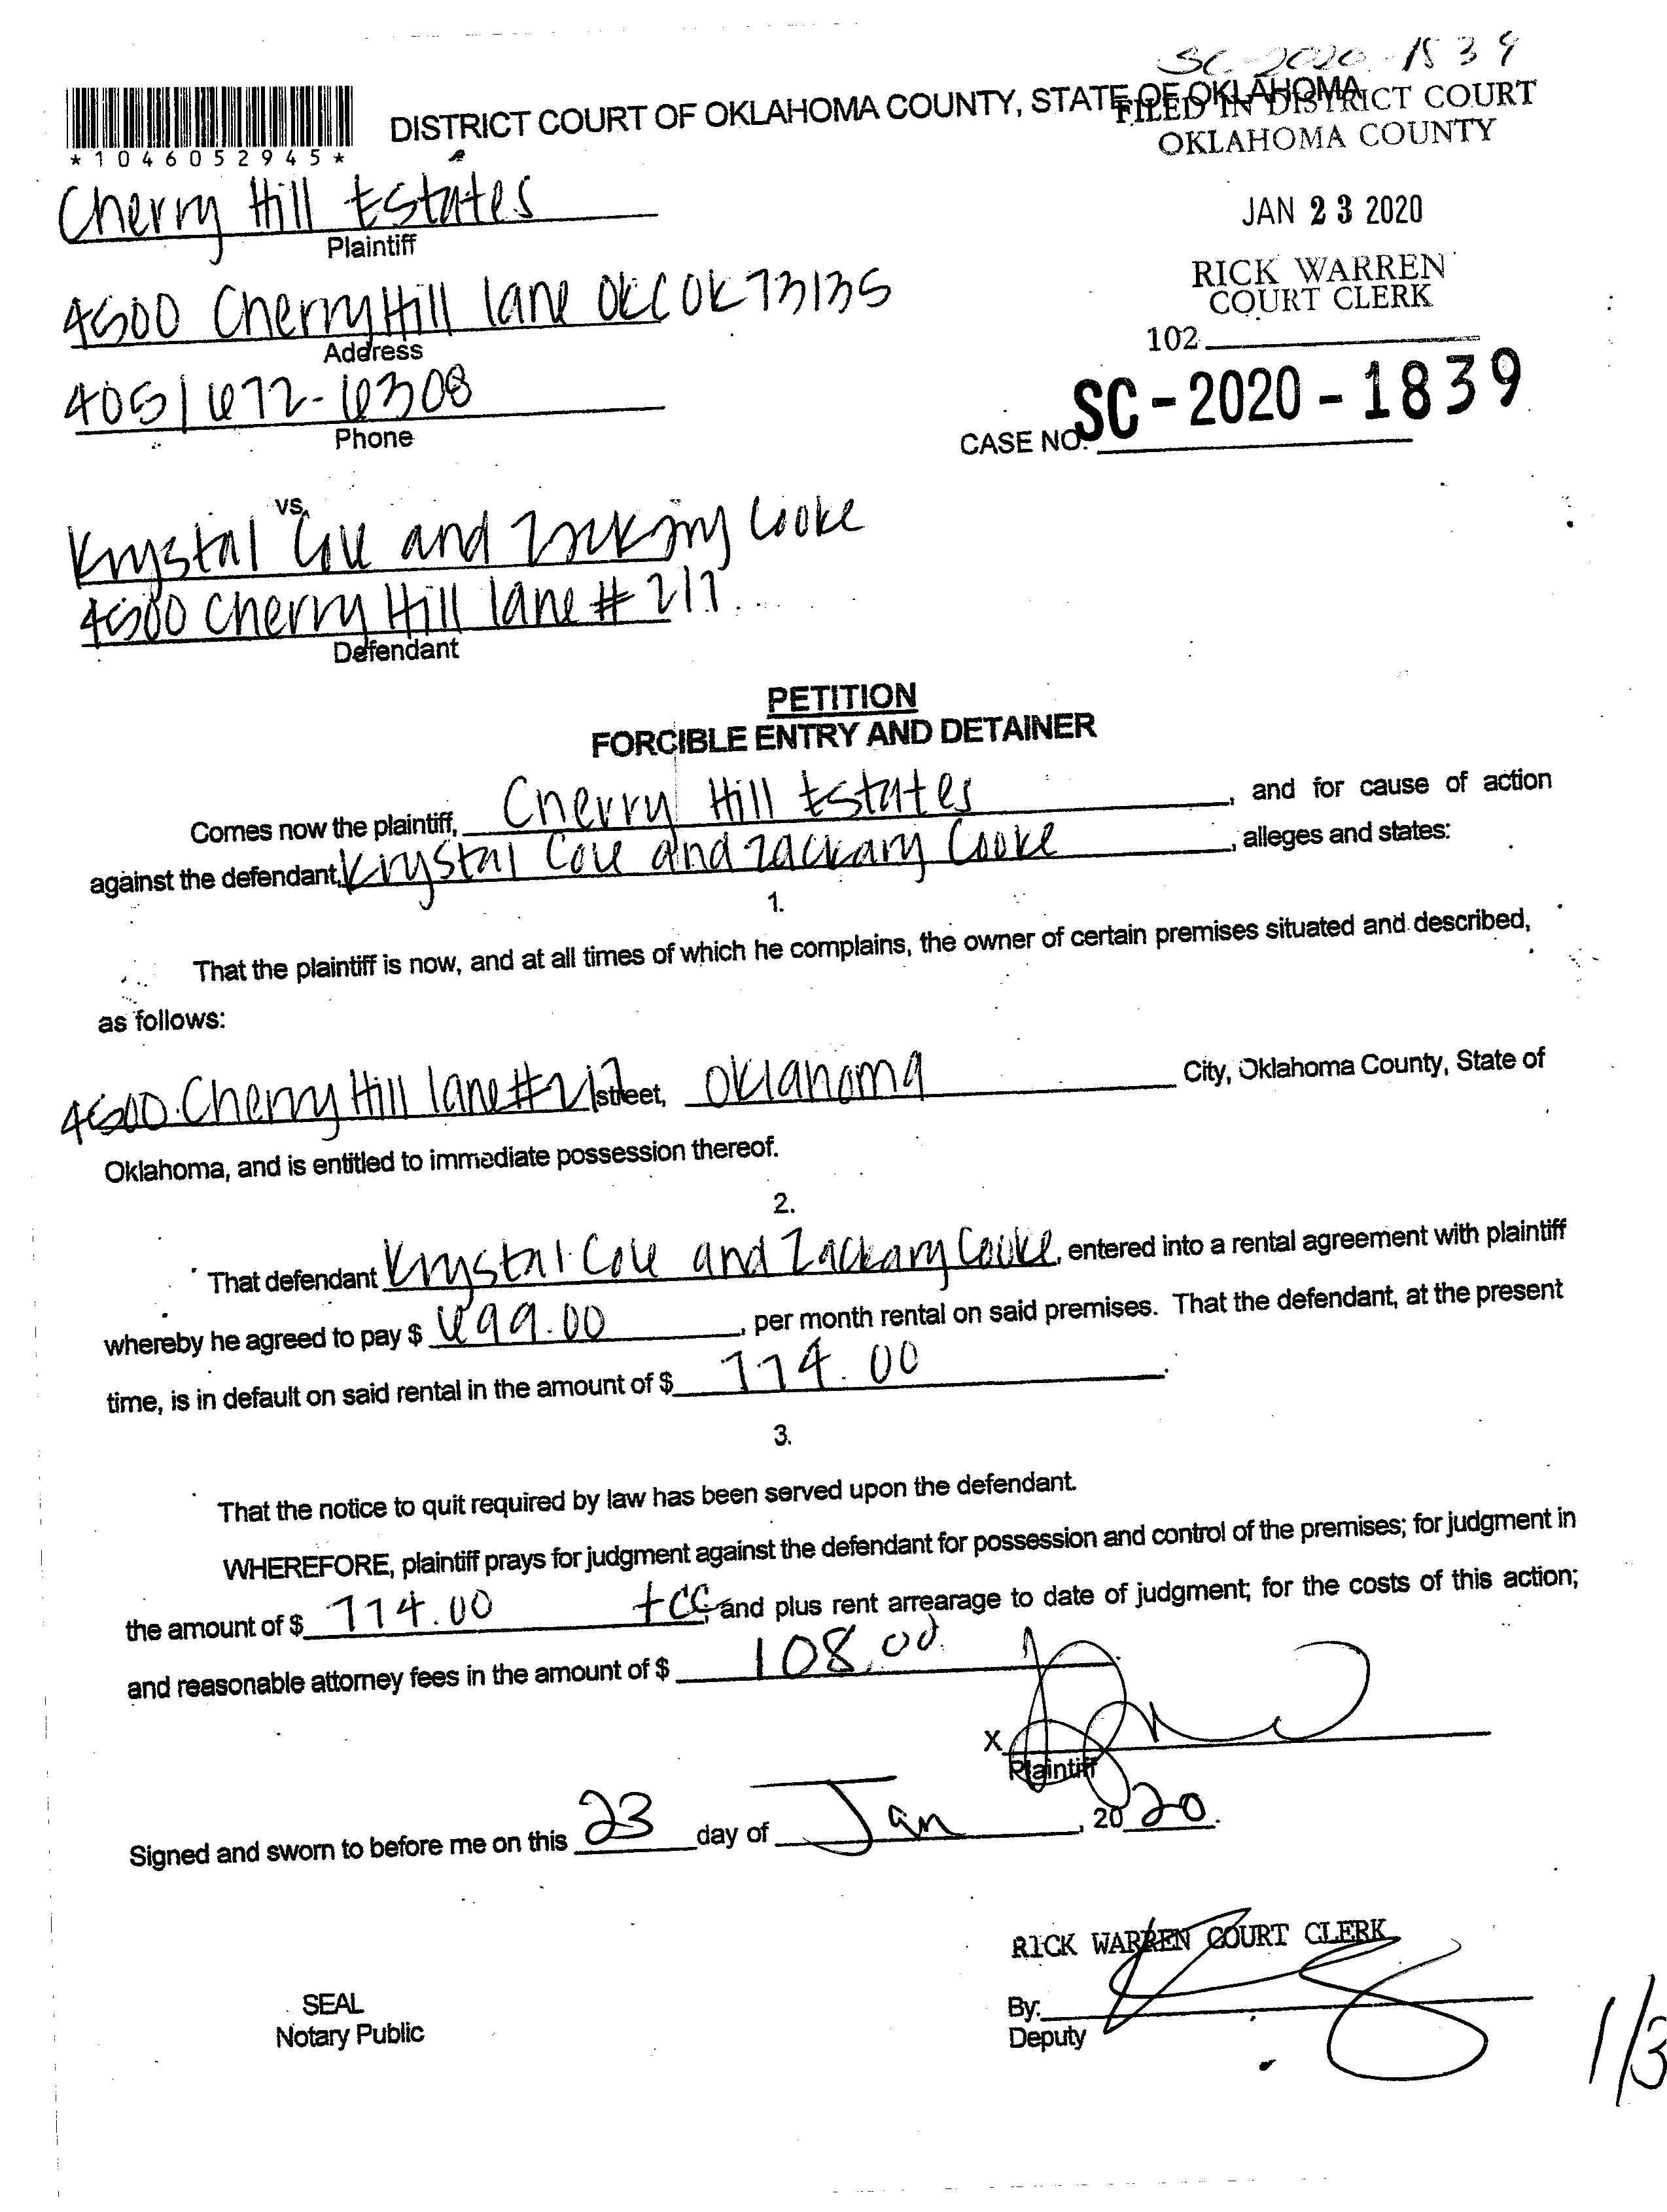 SC-2020-1839
DISTRICT COURT OF OKLAHOMA COUNTY, STATE OF OKLAHOMA
FILED IN DISTRICT COURT
OKLAHOMA COUNTY
*1046052945*
JAN 23 2020
RICK WARREN
COURT CLERK
102
Cherry Hill Estates
Plaintiff
4500 Cherry Hill lane OKC OK 73135
Address
405/672-6308
Phone
CASE NO. SC-2020-1839
vs.
Krystal Cole and Zackary Cooke
4500 Cherry Hill lane # 217
Defendant
PETITION
FORCIBLE ENTRY AND DETAINER
Comes now the plaintiff, Cherry Hill Estates, and for cause of action
against the defendant, Krystal Cole and Zackary Cooke, alleges and states:
1.
That the plaintiff is now, and at all times of which he complains, the owner of certain premises situated and described,
as follows:
4500 Cherry Hill lane #217 street, Oklahoma City, Oklahoma County, State of
Oklahoma, and is entitled to immediate possession thereof.
2.
That defendant Krystal Cole and Zackary Cooke, entered into a rental agreement with plaintiff
whereby he agreed to pay $ 699.00, per month rental on said premises. That the defendant, at the present
time, is in default on said rental in the amount of $ 774.00.
3.
That the notice to quit required by law has been served upon the defendant.
WHEREFORE, plaintiff prays for judgment against the defendant for possession and control of the premises; for judgment in
the amount of $ 774.00 +CC, and plus rent arrearage to date of judgment; for the costs of this action;
and reasonable attorney fees in the amount of $ 108.00.
X
Plaintiff
Signed and sworn to before me on this 23 day of Jan, 2020.
RICK WARREN COURT CLERK
SEAL
Notary Public
By:
Deputy
1/3